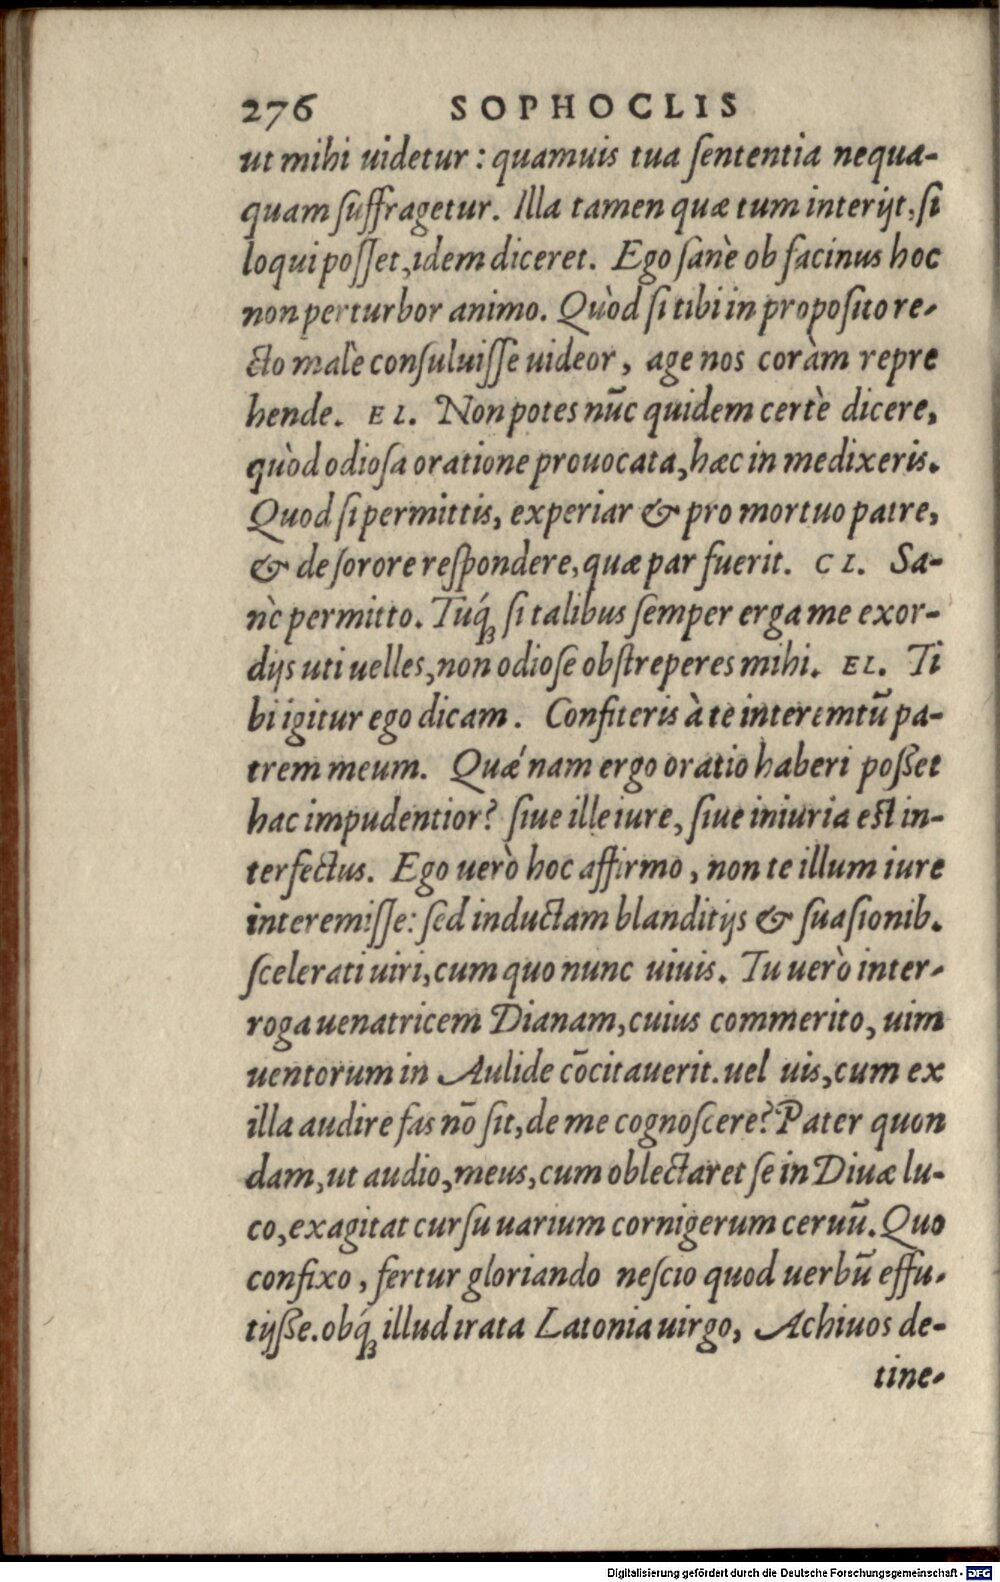 276 SOPHOCLIS
ut mihi uidetur: quamuis tua ſententia nequa-
quam ſuffragetur. Illa tamen quæ tum interijt, ſi
loqui poſſet, idem diceret. Ego ſanè ob facinus hoc
non perturbor animo. Quòd ſi tibi in propoſito re-
cto malè conſuluiſſe uideor, age nos coràm repre
hende. EL. Non potes nūc quidem certè dicere,
quòd odioſa oratione prouocata, hæc in me dixeris.
Quod ſi permittis, experiar & pro mortuo patre,
& de ſorore reſpondere, quæ par fuerit. CL. Sa-
nè permitto. Tuq́ꝫ ſi talibus ſemper erga me exor-
dijs uti uelles, non odioſe obſtreperes mihi. EL. Ti
bi igitur ego dicam. Confiteris à te interemtū pa-
trem meum. Quǽ nam ergo oratio haberi poßet
hac impudentior? ſiue ille iure, ſiue iniuria eſt in-
terfectus. Ego uerò hoc affirmo, non te illum iure
interemiſſe: ſed inductam blanditijs & ſuaſionib.
ſcelerati uiri, cum quo nunc uiuis. Tu uerò inter-
roga uenatricem Dianam, cuius commerito, uim
uentorum in Aulide cōcitauerit. uel uis, cum ex
illa audire fas nō ſit, de me cognoſcere? Pater quon
dam, ut audio, meus, cum oblectaret ſe in Diuæ lu-
co, exagitat curſu uarium cornigerum ceruū. Quo
confixo, fertur gloriando neſcio quod uerbū effu-
tijße. obq́ꝫ illud irata Latonia uirgo, Achiuos de-
tine-
Digitalisierung gefördert durch die Deutsche Forschungsgemeinschaft - DFG